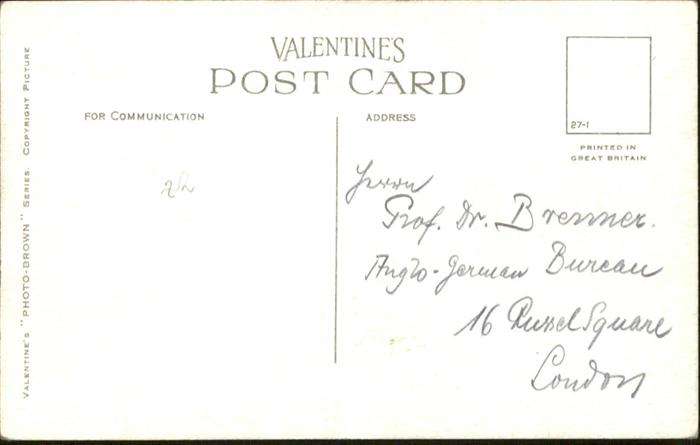 VALENTINE'S
POST CARD
FOR COMMUNICATION
ADDRESS
27-1
PRINTED IN
GREAT BRITAIN
VALENTINE'S "PHOTO-BROWN" SERIES. COPYRIGHT PICTURE
Herrn
Prof. Dr. Brenner.
Anglo-German Bureau
16 Russel Square
London